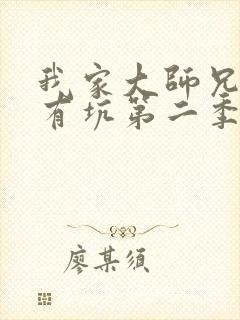 我家大師兄
有坑第二季
廖某须